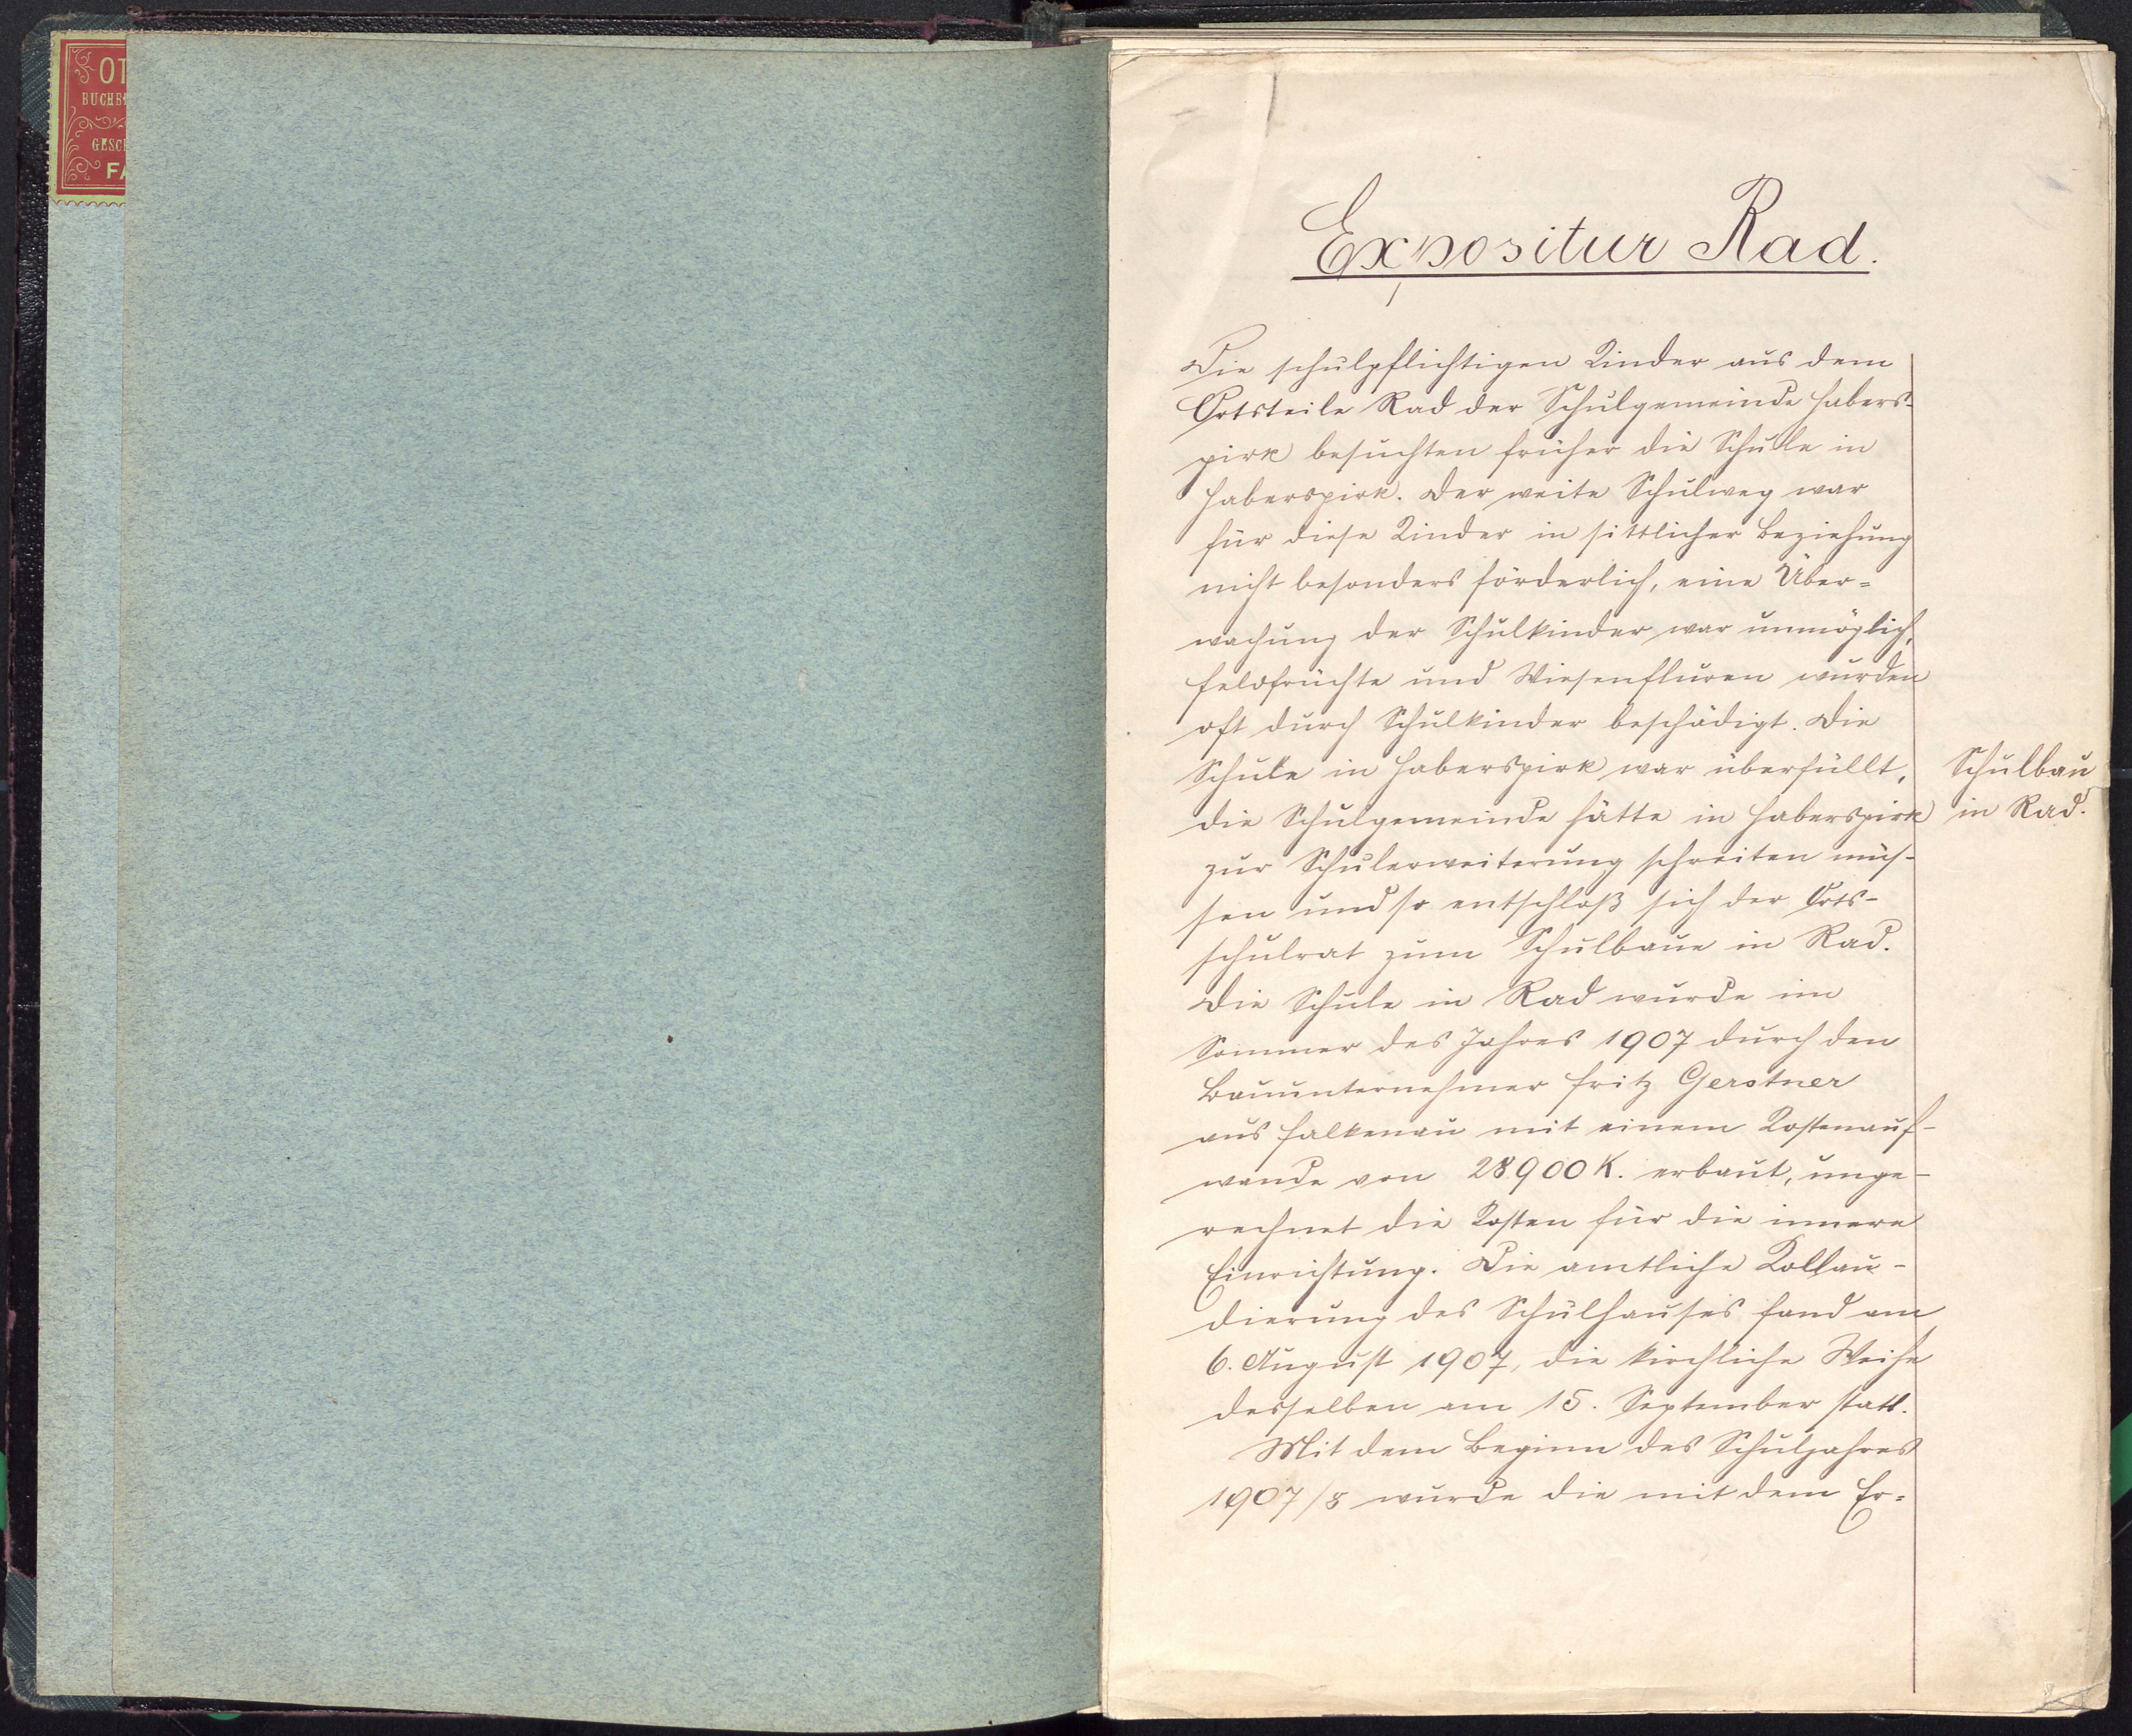 OT
BUCHB
GESCH
FA
Expositur Rad.
Die schulpflichtigen Kinder aus dem
Ortsteile Rad der Schulgemeinde Habers-
pirk besuchten früher die Schule in
Haberspirk. Der weite Schulweg war
für diese Kinder in sittlicher Beziehung
nicht besonders förderlich, eine Über=
wachung der Schulkinder war unmöglich,
Feldfrüchte und Wiesenfluren wurden
oft durch Schulkinder beschädigt. Die
Schule in Haberspirk war überfüllt,
die Schulgemeinde hätte in Haberspirk
zur Schulerweiterung schreiten müs-
sen und so entschloß sich der Orts-
schulrat zum Schulbaue in Rad.
Schulbau
in Rad.
Die Schule in Rad wurde im
Sommer des Jahres 1907 durch den
Bauunternehmer Fritz Gerstner
aus Falkenau mit einem Kostenauf-
wande von 28900 K. erbaut, unge-
rechnet die Kosten für die innere
Einrichtung. Die amtliche Kollau-
dierung des Schulhauses fand am
6. August 1907, die kirchliche Weihe
desselben am 15. September statt.
Mit dem Beginn des Schuljahres
1907/8 wurde die mit dem Er=